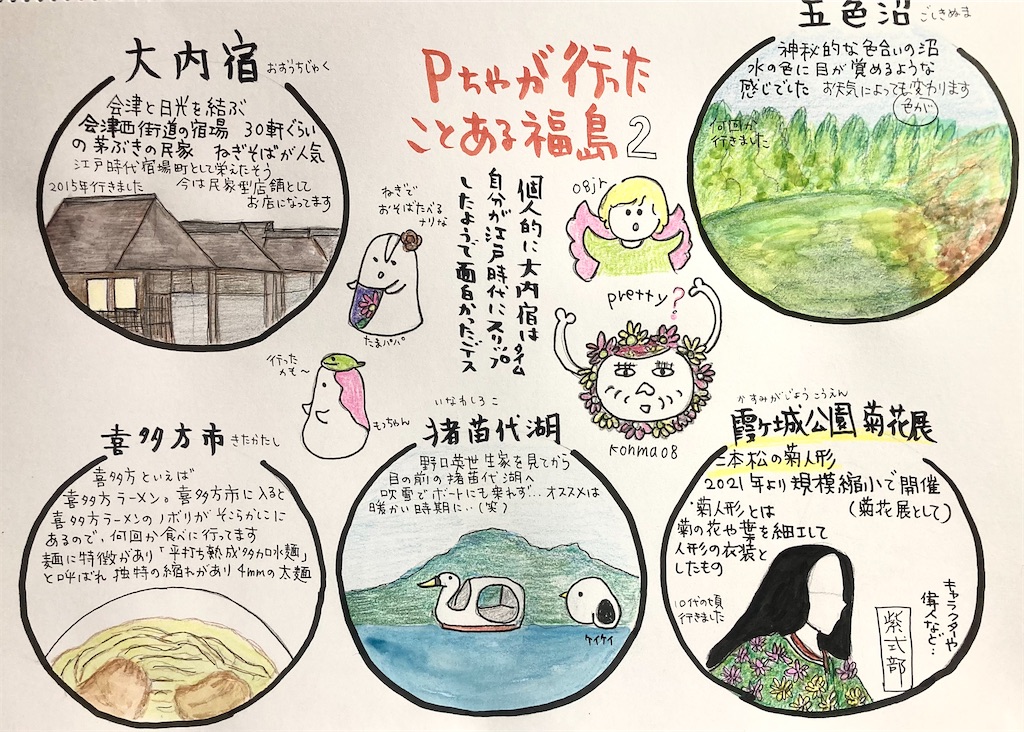 Pちゃが行った
ことある福島2
大内宿
おおうちじゅく
会津と日光を結ぶ
会津西街道の宿場 30軒ぐらい
の茅ぶきの民家 ねぎそばが人気
江戸時代宿場町として栄えたそう
2015年行きました 今は民家型店舗として
お店になってます
五色沼
ごしきぬま
神秘的な色合いの沼
水の色に目が覚めるような
感じでした お天気によっても変わります
色が
何回か
行きました
ねぎで
おそばたべる
ナリな
たまパパ
個人的に大内宿はタイム
自分が江戸時代にスリップ
したようで面白かったデス
08jr
pretty?
kohma08
行った
かも〜
もっちゃん
喜多方市
きたかたし
喜多方といえば
喜多方ラーメン。喜多方市に入ると
喜多方ラーメンのノボリがそこらかしこに
あるので、何回か食べに行ってます
麺に特徴があり「平打ち熟成多加水麺」
と呼ばれ独特の縮れがあり4mmの太麺
いなわしろこ
猪苗代湖
野口英世生家を見てから
目の前の猪苗代湖へ
吹雪でボートにも乗れず…オススメは
暖かい時期に‥(笑)
ケイケイ
かすみがじょうこうえん
霞ヶ城公園菊花展
二本松の菊人形
2021年より規模縮小で開催
(菊花展として)
・菊人形とは
菊の花や葉を細工して
人形の衣装と
したもの
10代の頃
行きました
キャラクターや
偉人など…
紫式部